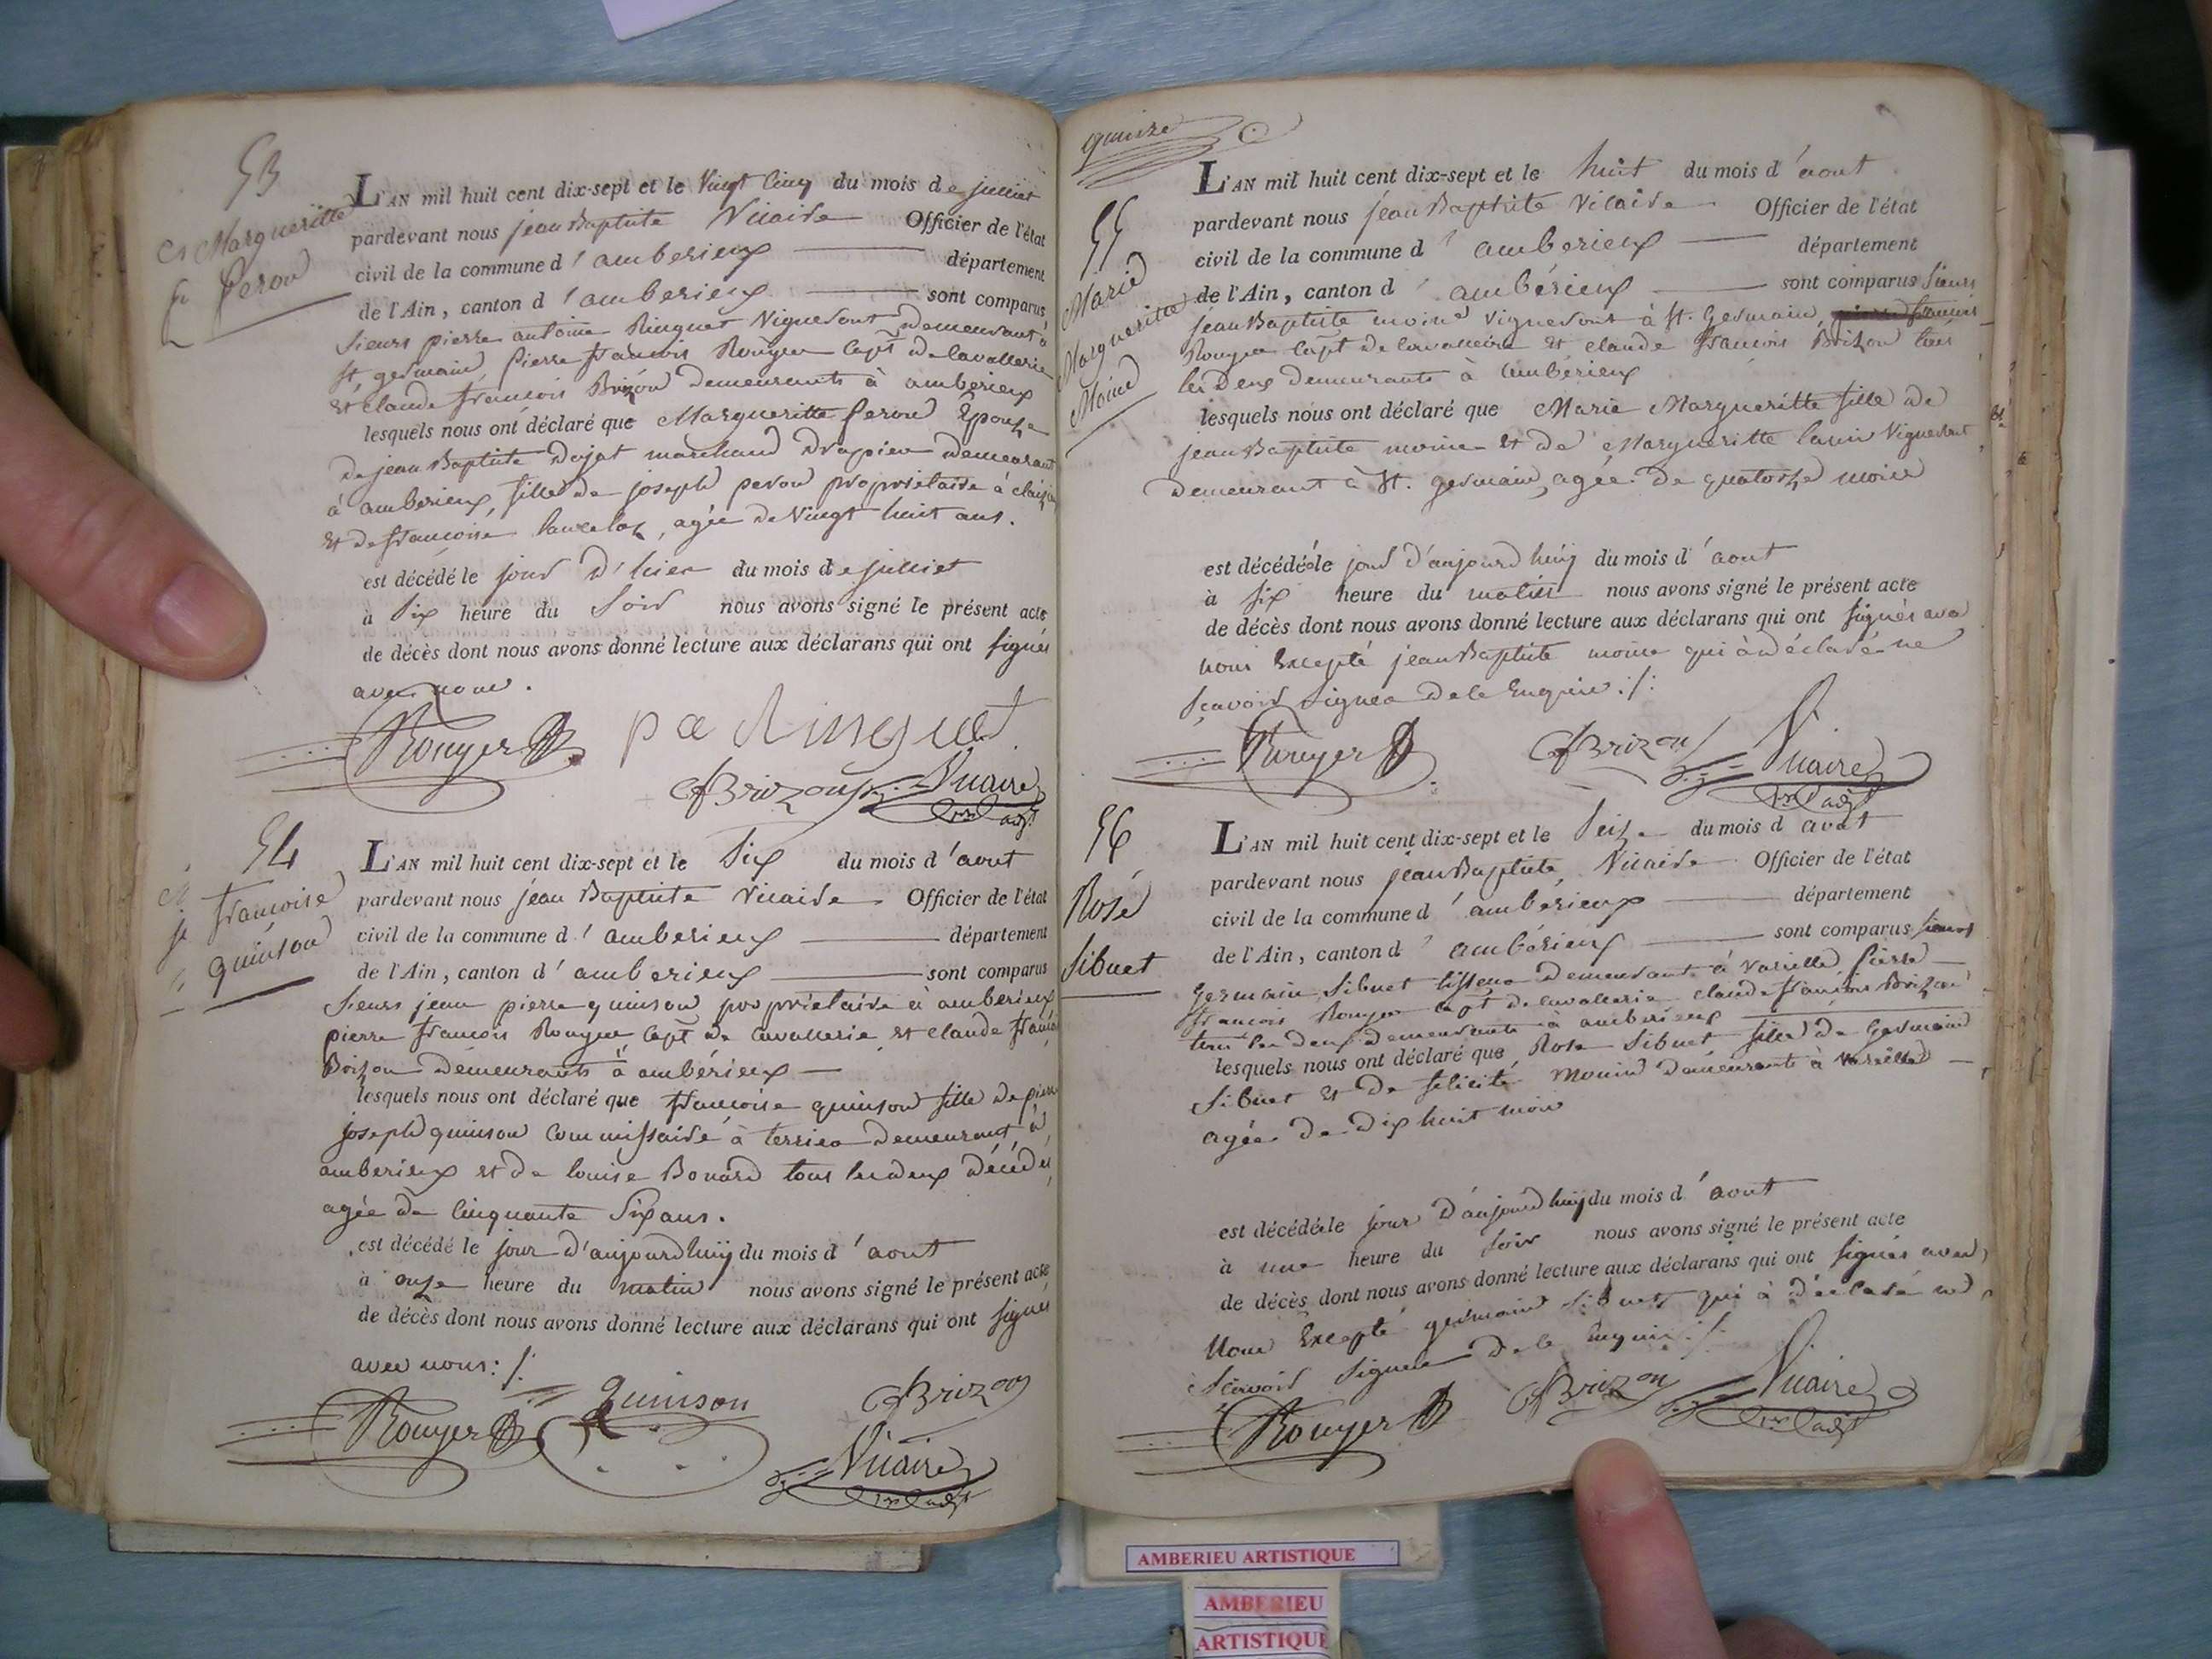 53
Margueritte
Perod
L'AN mil huit cent dix-sept et le Vingt Cinq du mois de juillet
pardevant nous jean Baptiste Vicaire Officier de l'état
civil de la commune d'amberieux département
de l'Ain, canton d'amberieux sont comparus
Sieurs pierre antoine Ringuet Vigneront demeurant à
St germain, Pierre francois Rouyer Capt de Cavallerie
et Claude francois Brizon demeurants à amberieux
lesquels nous ont déclaré que Margueritte Perod Epouse
de jean Baptiste Dojat marchand Drapier demeurant
à amberieux, fille de joseph perod propriétaire à
et de francoise , agée de Vingt huit ans.
est décédé le jour d'hier du mois de juillet
à Six heure du Soir nous avons signé le présent acte
de décès dont nous avons donné lecture aux déclarans qui ont signés
avec nous.
Rouyer pa Ringuet
CfBrizon Vicaire
adjt
54
francoise
quinson
L'AN mil huit cent dix-sept et le Six du mois d'aout
pardevant nous jean Baptiste Vicaire Officier de l'état
civil de la commune d'amberieux département
de l'Ain, canton d'amberieux sont comparus
Sieurs jean pierre quinson propriétaire à amberieux
pierre francois Rouyer Capt de Cavallerie et claude francois
Brizon demeurants à ambérieux
lesquels nous ont déclaré que francoise quinson fille de pierre
joseph quinson Commissaire à terrier demeurant à
ambérieux et de louise Bonard tous les deux décédés,
agée de Cinquante Six ans.
est décédé le jour d'aujourdhuij du mois d'aout
à onze heure du matin nous avons signé le présent acte
de décès dont nous avons donné lecture aux déclarans qui ont signés
avec nous :/:
Rouyer Quinson CfBrizon
Vicaire
adjt
quinze
55
Marie
Margueritte
Moine
L'AN mil huit cent dix-sept et le huit du mois d'aout
pardevant nous jean Baptiste Vicaire Officier de l'état
civil de la commune d'amberieux département
de l'Ain, canton d'ambérieux sont comparus Sieurs
jean Baptiste moine vigneront à St. Germain, pierre francois
Rouyer Capt de Cavallerie et claude francois Brizon tous
les deux demeurants à ambérieux
lesquels nous ont déclaré que Marie Margueritte fille de
jean Baptiste moine et de Margueritte Vigneront
demeurant à St. germain, agée de quatorze mois
est décédée le jour d'aujourdhuij du mois d'aout
à six heure du matin nous avons signé le présent acte
de décès dont nous avons donné lecture aux déclarans qui ont signés avec
nous Excepté jean Baptiste moine qui à déclaré ne
scavoir signer de ce Enquis :/:
Rouyer CfBrizon Vicaire
adjt
56
Rose
Sibuet
L'AN mil huit cent dix-sept et le Seize du mois d'aout
pardevant nous jean Baptiste Vicaire Officier de l'état
civil de la commune d'ambérieux département
de l'Ain, canton d'ambérieux sont comparus Sieurs
germain Sibuet tisseur demeurant à Vareille Pierre
francois Rouyer Capt de Cavallerie Claude francois Brizon
tous les deux demeurants à amberieux
lesquels nous ont déclaré que Rose Sibuet fille de Germain
Sibuet et de felicité Monin demeurants à Vareille
agée de dix huit mois
est décédée le jour d'aujourdhuij du mois d'aout
à une heure du Soir nous avons signé le présent acte
de décès dont nous avons donné lecture aux déclarans qui ont signés avec
nous Excepté germain Sibuet qui à déclaré ne
scavoir signer de ce Enquis :/:
Rouyer CfBrizon Vicaire
adjt
AMBERIEU ARTISTIQUE
AMBERIEU
ARTISTIQUE